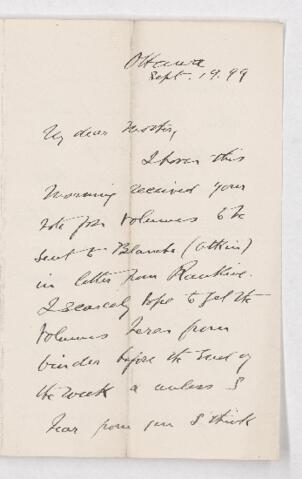 Ottawa
Sept. 19. 99
My dear
I have this
morning received your
note for volumes to be
sent to Blanche (Atkin)
in letter from Rankine.
I scarcely hope to get the
volumes here from
binder before the end of
the week & unless I
hear from you I think